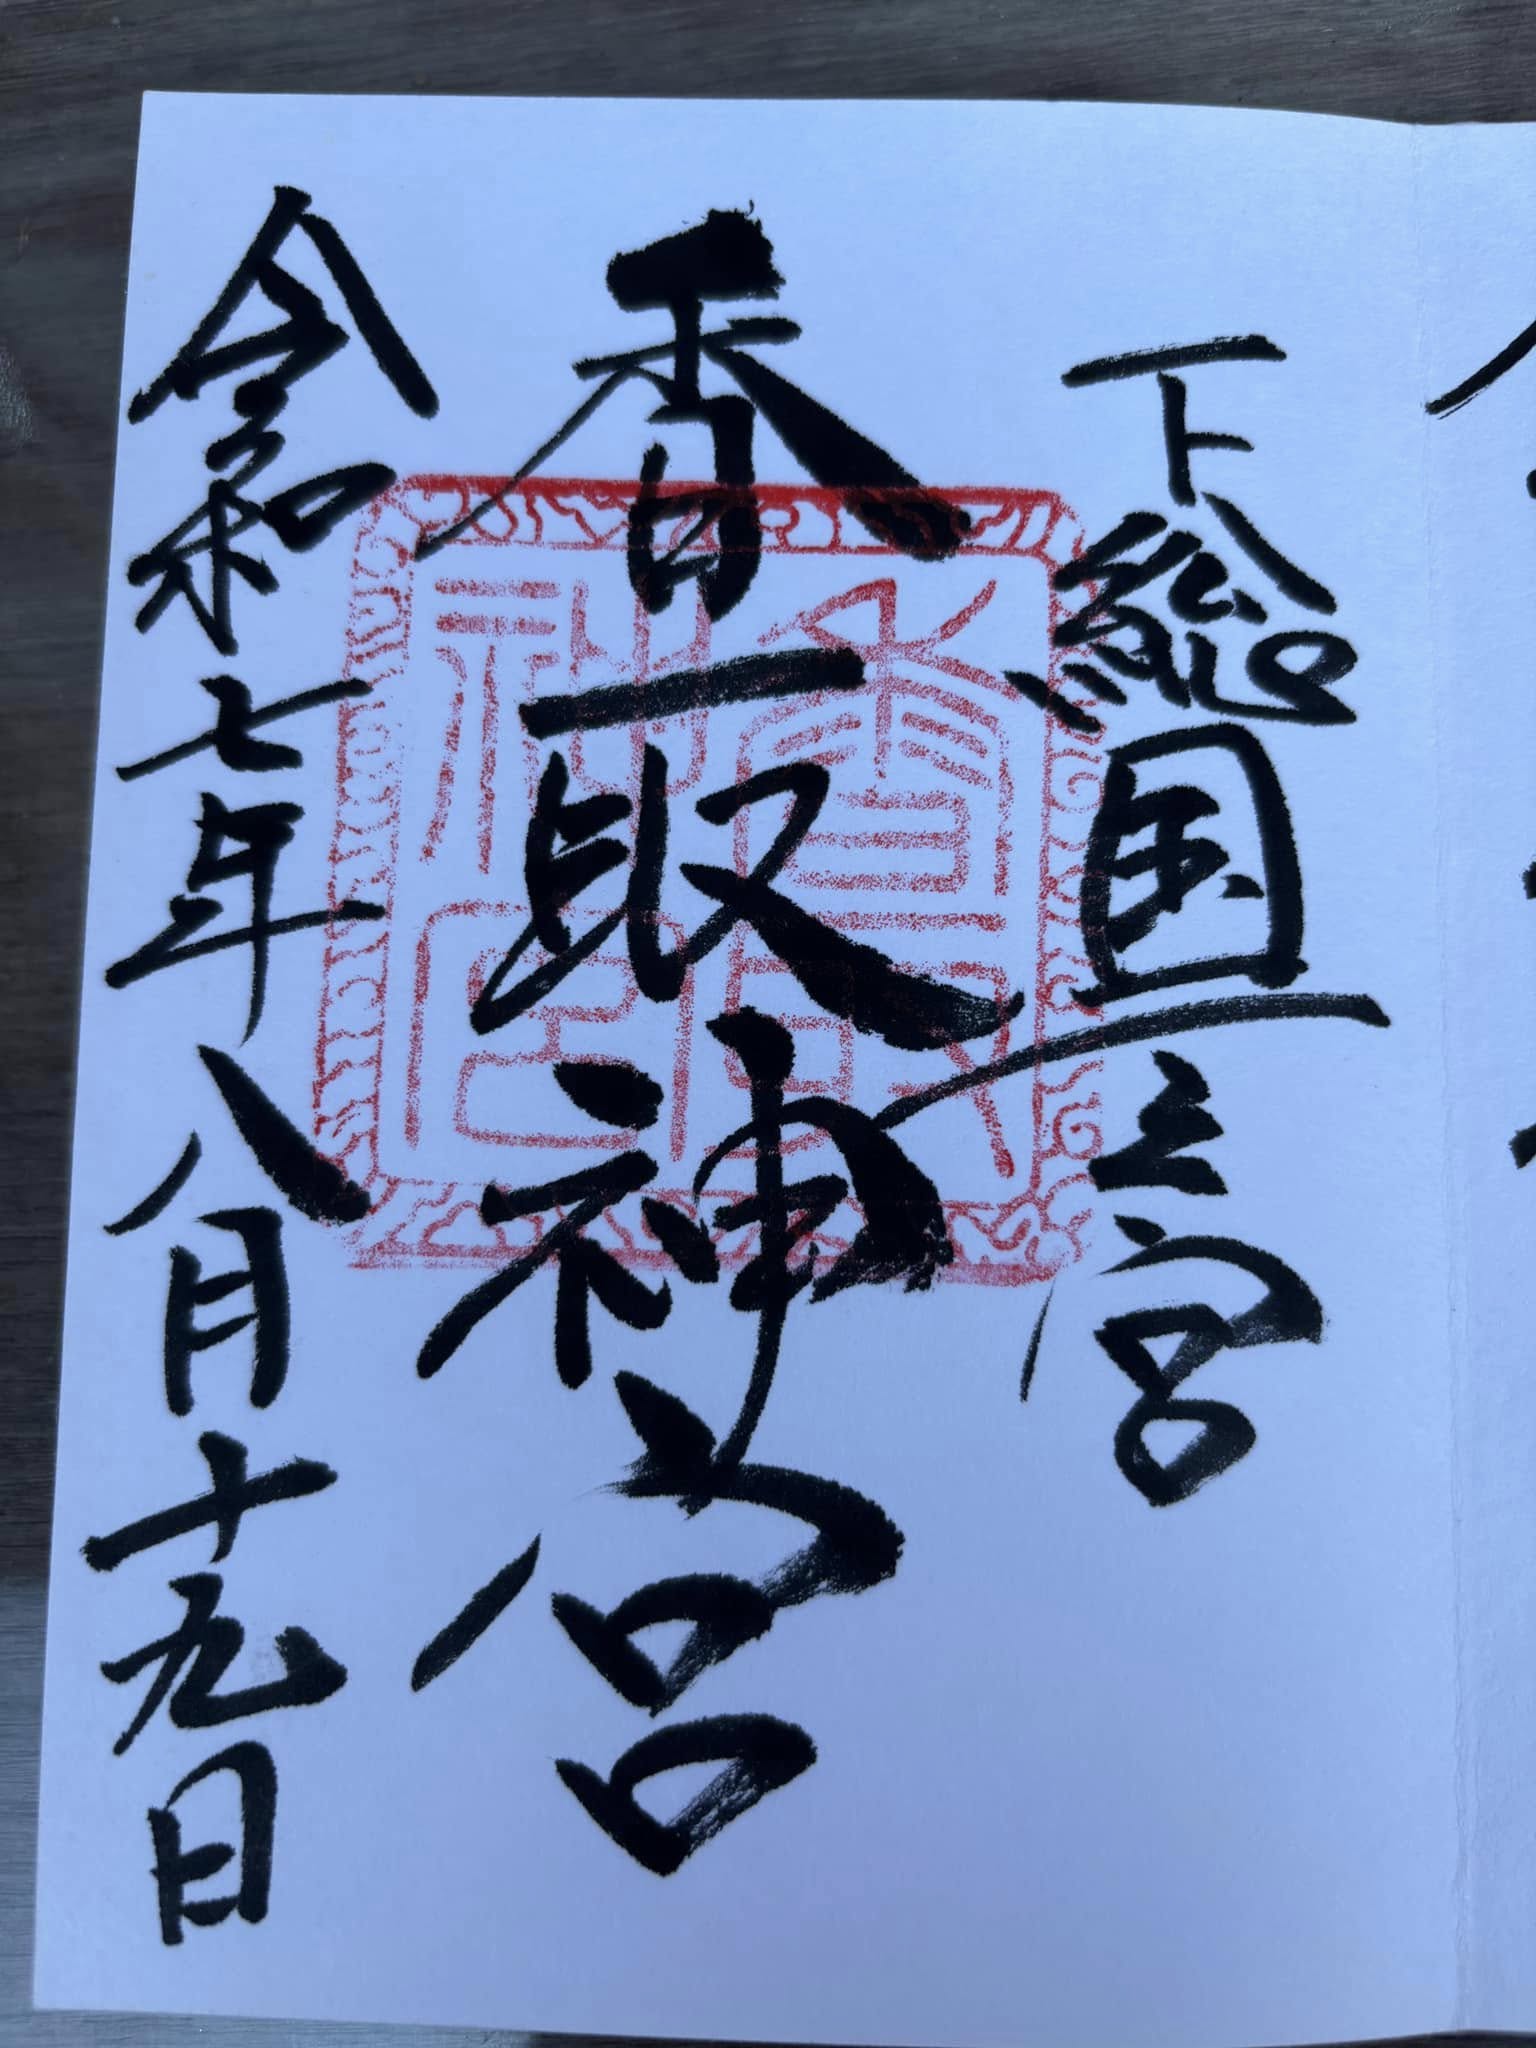 下総国一之宮
香取神宮
令和七年八月十九日
香取
神宮